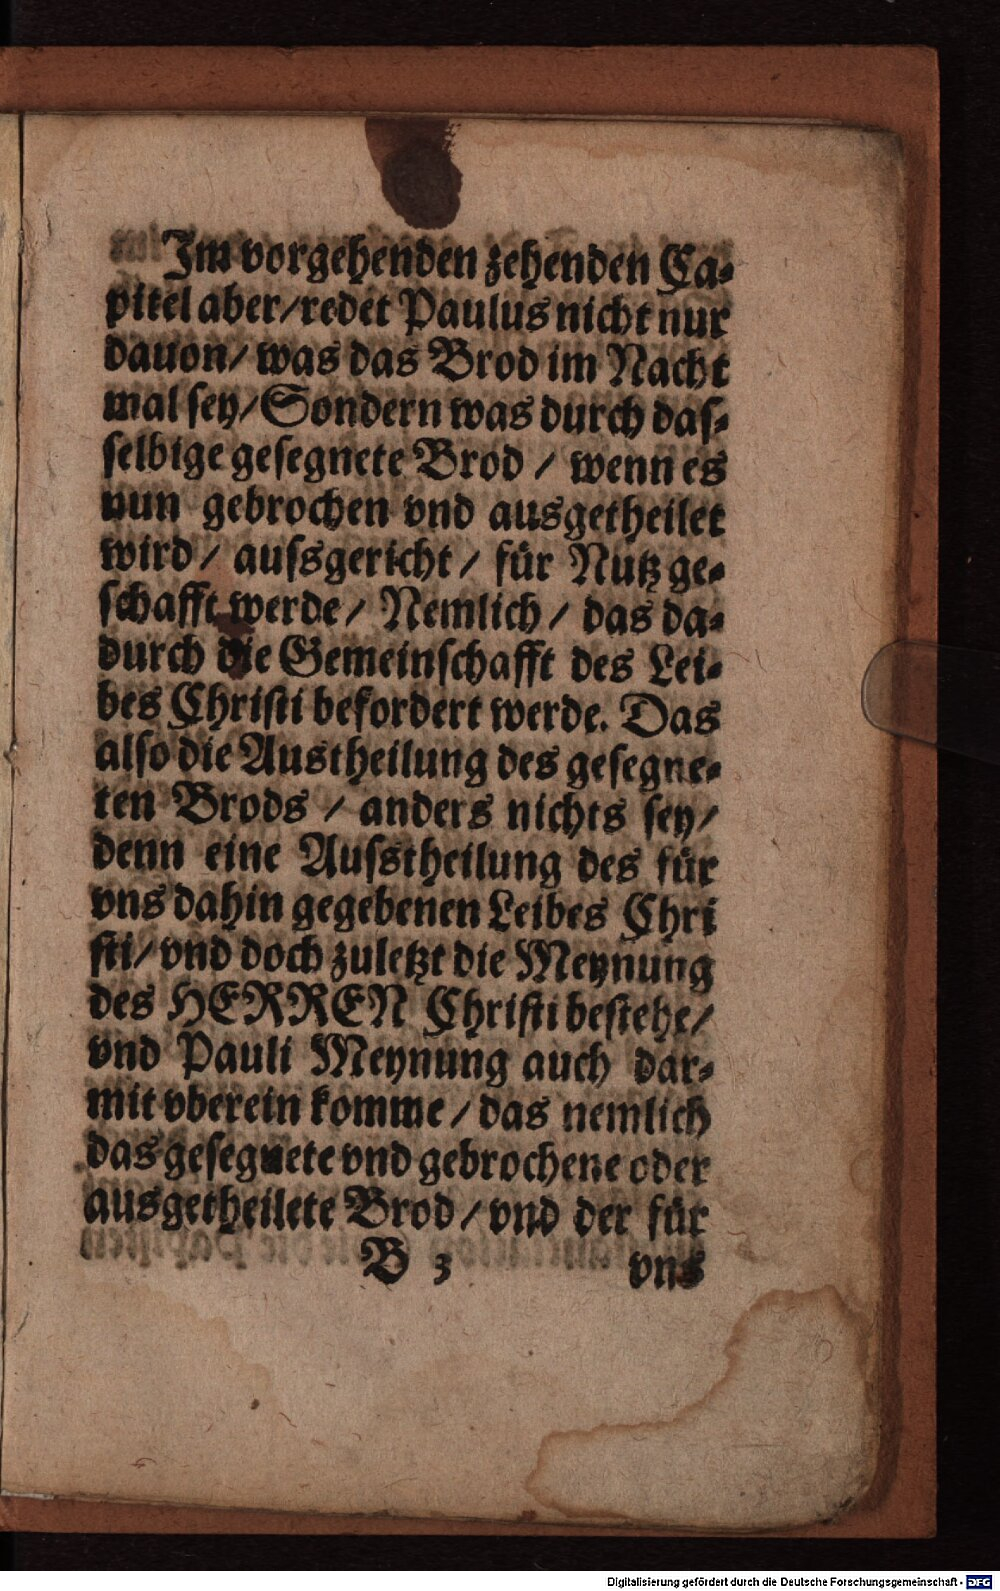 Im vorgehenden zehenden Ca-
pitel aber/redet Paulus nicht nur
dauon/ was das Brod im Nacht
mal sey/Sondern was durch das-
selbige gesegnete Brod / wenn es
nun gebrochen vnd ausgetheilet
wird/ aufsgericht/ für Nutz ge-
schafft werde/ Nemlich/ das da-
durch die Gemeinschafft des Lei-
bes Christi befordert werde. Das
also die Austheilung des gesegne-
ten Brods / anders nichts sey/
denn eine Aufstheilung des für
vns dahin gegebenen Leibes Chri
sti/ vnd doch zuletzt die Meynung
des HERREN Christi bestehe/
vnd Pauli Meynung auch dar-
mit vberein komme/ das nemlich
das gesegnete vnd gebrochene oder
ausgetheilete Brod/ vnd der für
B 3 vns
Digitalisierung gefördert durch die Deutsche Forschungsgemeinschaft - DFG